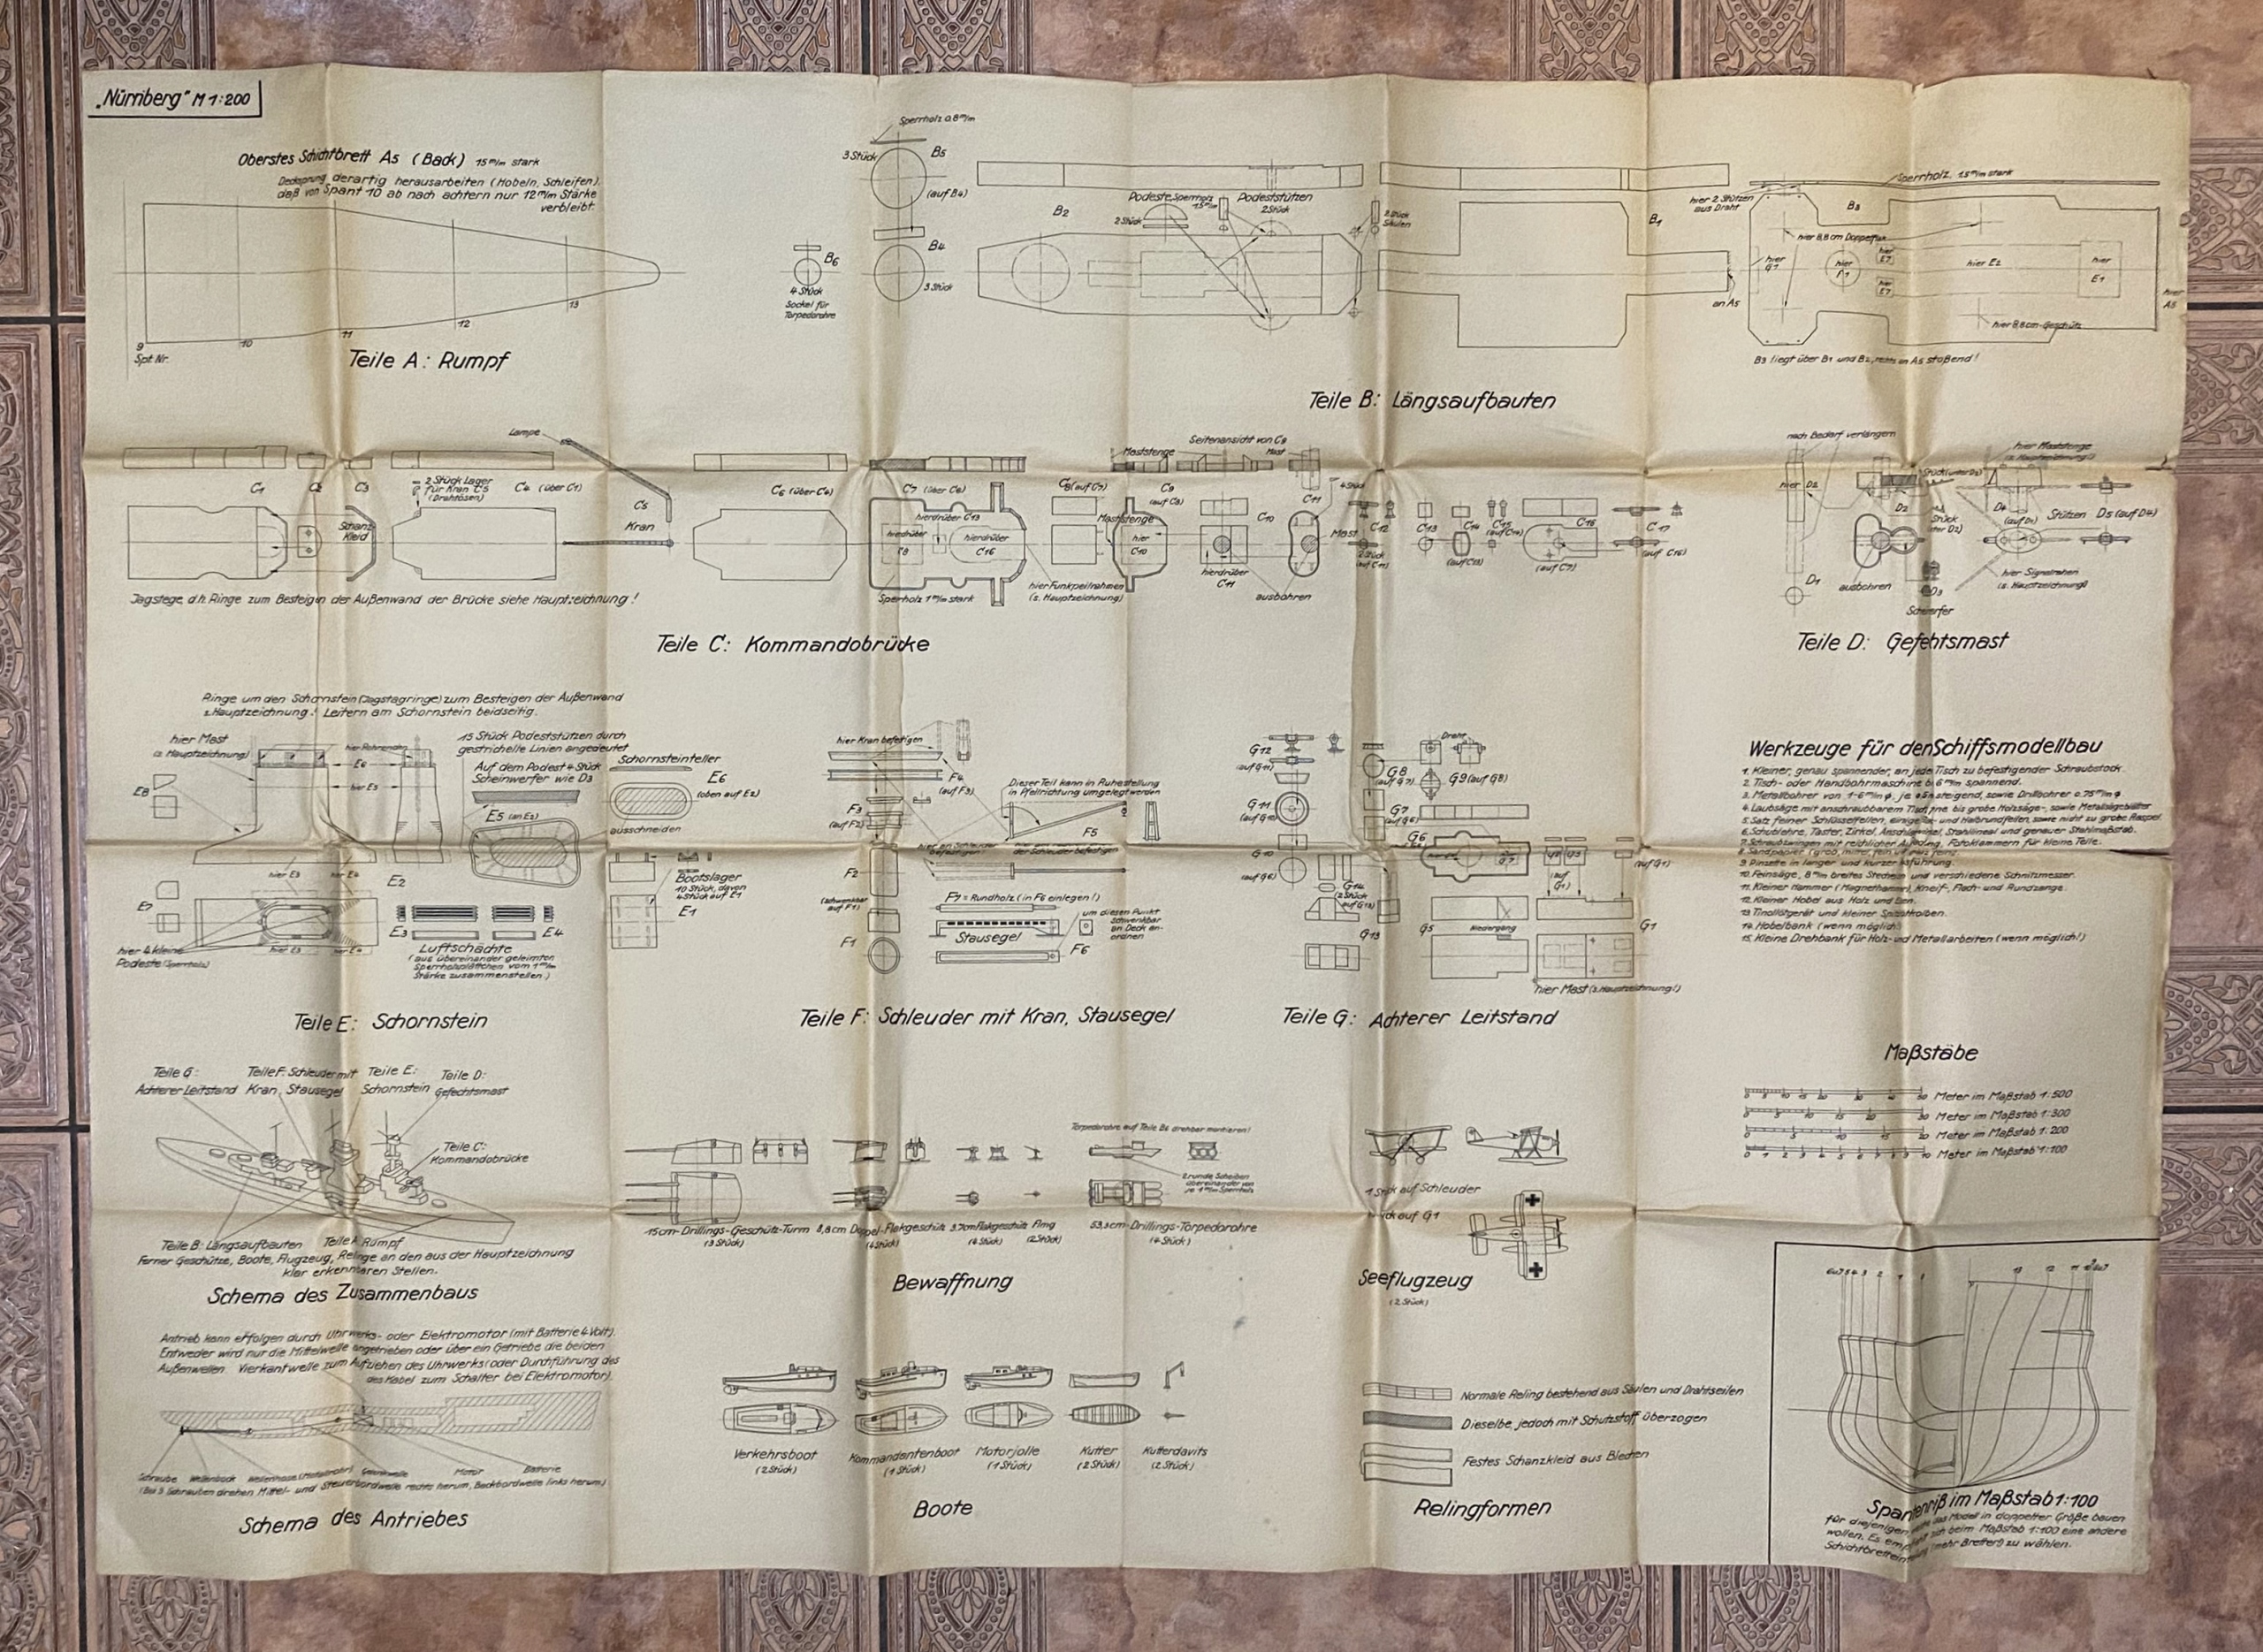 „Nürnberg" M 1:200
Oberstes Schichtbrett A5 (Back) 15 m/m stark
Decksprung derartig herausarbeiten (Hobeln, Schleifen),
daß von Spant 10 ab nach achtern nur 12 m/m Stärke
verbleibt.
9
10
11
12
13
Spt. Nr.
Teile A: Rumpf
Sperrholz 0.8 m/m
3 Stück
B5
(auf B4)
B4
3 Stück
B6
4 Stück
Sockel für
Torpedorohre
B2
Podeste, Sperrholz
1.5 m/m
2 Stück
Podeststützen
2 Stück
2 Stück
Säulen
B1
an A5
hier 2 Stützen
aus Draht
Sperrholz, 1.5 m/m stark
B3
hier 8,8 cm Doppelflak
hier
G1
hier
F1
hier
E7
hier
E7
hier E2
hier
E1
hier
A5
hier 8,8 cm-Geschütz
B3 liegt über B1 und B2, rechts an A5 stoßend!
Teile B: Längsaufbauten
Lampe
C1
C2
C3
Schanz-
kleid
2 Stück Lager
für Kran C5
(Drahtösen)
C4 (über C1)
C5
Kran
C6 (über C4)
C7 (über C6)
hierdrüber C13
hierdrüber
C8
hierdrüber
C16
Sperholz 1 m/m stark
hier Funkpeilrahmen
(s. Hauptzeichnung)
C8 (auf C7)
Maststenge
Seitenansicht von C9
Mast
C9
(auf C8)
Maststenge
hier
C10
C10
hierdrüber
C11
C11
4 Stück
Mast
ausbohren
C12
2 Stück
(auf C11)
C13
C14
(auf C13)
C15
(auf C14)
C16
(auf C7)
C17
(auf C16)
Jagstege, d.h. Ringe zum Besteigen der Außenwand der Brücke siehe Hauptzeichnung!
Teile C: Kommandobrücke
nach Bedarf verlängern
hier D2
D1
D2
ausbohren
D3
Scheinwerfer
hier Maststenge
(s. Hauptzeichnung!)
D4
(auf D1)
Stützen
D5 (auf D4)
hier Signalrahen
(s. Hauptzeichnung)
Teile D: Gefechtsmast
Ringe um den Schornstein (Jagstagringe) zum Besteigen der Außenwand
s. Hauptzeichnung! Leitern am Schornstein beidseitig.
hier Mast
(s. Hauptzeichnung)
15 Stück Podeststützen durch
gestrichelte Linien angedeutet
Auf dem Podest 4 Stück
Scheinwerfer wie D3
E6
hier E5
E8
E5 (an E2)
Schornsteinteller
E6
(oben auf E2)
ausschneiden
hier E3
hier E4
E2
E7
hier E3
hier E4
hier 4 kleine
Podeste (Sperrholz)
E3
E4
Luftschächte
(aus übereinander geleimten
Sperrholzplättchen vom 1 m/m
Stärke zusammenstellen.)
Bootslager
10 Stück, davon
4 Stück auf E1
E1
Teile E: Schornstein
hier Kran befestigen
F4
(auf F3)
F3
(auf F2)
Dieser Teil kann in Ruhestellung
in Pfeilrichtung umgelegt werden
F5
F2
(schwenkbar
auf F1)
F1
F7 = Rundholz (in F6 einlegen!)
um diesen Punkt
schwenkbar
an Deck an-
ordnen
Stausegel
F6
Teile F: Schleuder mit Kran, Stausegel
G12
(auf G11)
G11
(auf G10)
G10
(auf G6)
Draht
G8
(auf G7)
G9 (auf G8)
G7
(auf G6)
G6
G14
(2 Stück
auf G13)
G13
G5
Niedergang
(auf
G1)
(auf G1)
G1
hier Mast (s. Hauptzeichnung!)
Teile G: Achterer Leitstand
Werkzeuge für den Schiffsmodellbau
1. Kleiner, genau spannender, an jede Tisch zu befestigender Schraubstock.
2. Tisch- oder Handbohrmaschine b. 6 m/m spannend.
3. Metallbohrer von 1-6 m/m φ, je 0.5 steigend, sowie Drillbohrer 0.75 m/m φ
4. Laubsäge mit anschraubbarem Tisch, feine bis grobe Holzsäge-, sowie Metallsägeblätter
5. Satz feiner Schlüsselfeilen, einige Flach- und Halbrundfeilen, sowie nicht zu grobe Raspel.
6. Schublehre, Taster, Zirkel, Anschlagwinkel, Stahllineal und genauer Stahlmaßstab.
7. Schraubzwingen mit reichlicher Ausladung, Fotoklammern für kleine Teile.
9. Pinzette in langer und kurzer Ausführung.
10. Feinsäge, 8 m/m breites Stecheisen und verschiedene Schnitzmesser.
11. Kleiner Hammer (Magnethammer), Kneif-, Flach- und Rundzange.
12. Kleiner Hobel aus Holz und Eisen.
13. Tinollötgerät und kleiner Spitzkolben.
14. Hobelbank (wenn möglich)
15. Kleine Drehbank für Holz- und Metallarbeiten (wenn möglich!)
Maßstäbe
Meter im Maßstab 1:500
Meter im Maßstab 1:300
Meter im Maßstab 1:200
Meter im Maßstab 1:100
Teile G:
Achterer Leitstand
Teile F: Schleuder mit
Kran, Stausegel
Teile E:
Schornstein
Teile D:
Gefechtsmast
Teile C:
Kommandobrücke
Teile B: Längsaufbauten
Teile A: Rumpf
Ferner Geschütze, Boote, Flugzeug, Relinge an den aus der Hauptzeichnung
klar erkennbaren Stellen.
Schema des Zusammenbaus
15 cm-Drillings-Geschütz-Turm
(3 Stück)
8,8 cm Doppel-Flakgeschütz
(4 Stück)
3.7 cm Flakgeschütz
(4 Stück)
Flmg
(2 Stück)
Torpedorohre auf Teile B6 drehbar montieren!
2 runde Scheiben
übereinander von
je 1 m/m Sperrholz
53,3 cm-Drillings-Torpedorohre
(4 Stück)
Bewaffnung
1 Stück auf Schleuder
auf G1
Seeflugzeug
(2 Stück)
Antrieb kann erfolgen durch Uhrwerks- oder Elektromotor (mit Batterie 4 Volt).
Entweder wird nur die Mittelwelle angetrieben oder über ein Getriebe die beiden
Außenwellen. Vierkantwelle zum Aufziehen des Uhrwerks (oder Durchführung des
des Kabel zum Schalter bei Elektromotor).
Schraube
Wellenbock
Motor
Batterie
(Bei 3 Schrauben drehen Mittel- und Steuerbordwelle rechts herum, Backbordwelle links herum)
Schema des Antriebes
Verkehrsboot
(2 Stück)
Kommandantenboot
(1 Stück)
Motorjolle
(1 Stück)
Kutter
(2 Stück)
Kutterdavits
(2 Stück)
Boote
Normale Reling bestehend aus Säulen und Drahtseilen
Dieselbe, jedoch mit Schutzstoff überzogen
Festes Schanzkleid aus Blechen
Relingformen
Spantenriß im Maßstab 1:100
für diejenigen, welche das Modell in doppelter Größe bauen
wollen. Es empfiehlt sich beim Maßstab 1:100 eine andere
Schichtbretteinteilung (mehr Bretter) zu wählen.